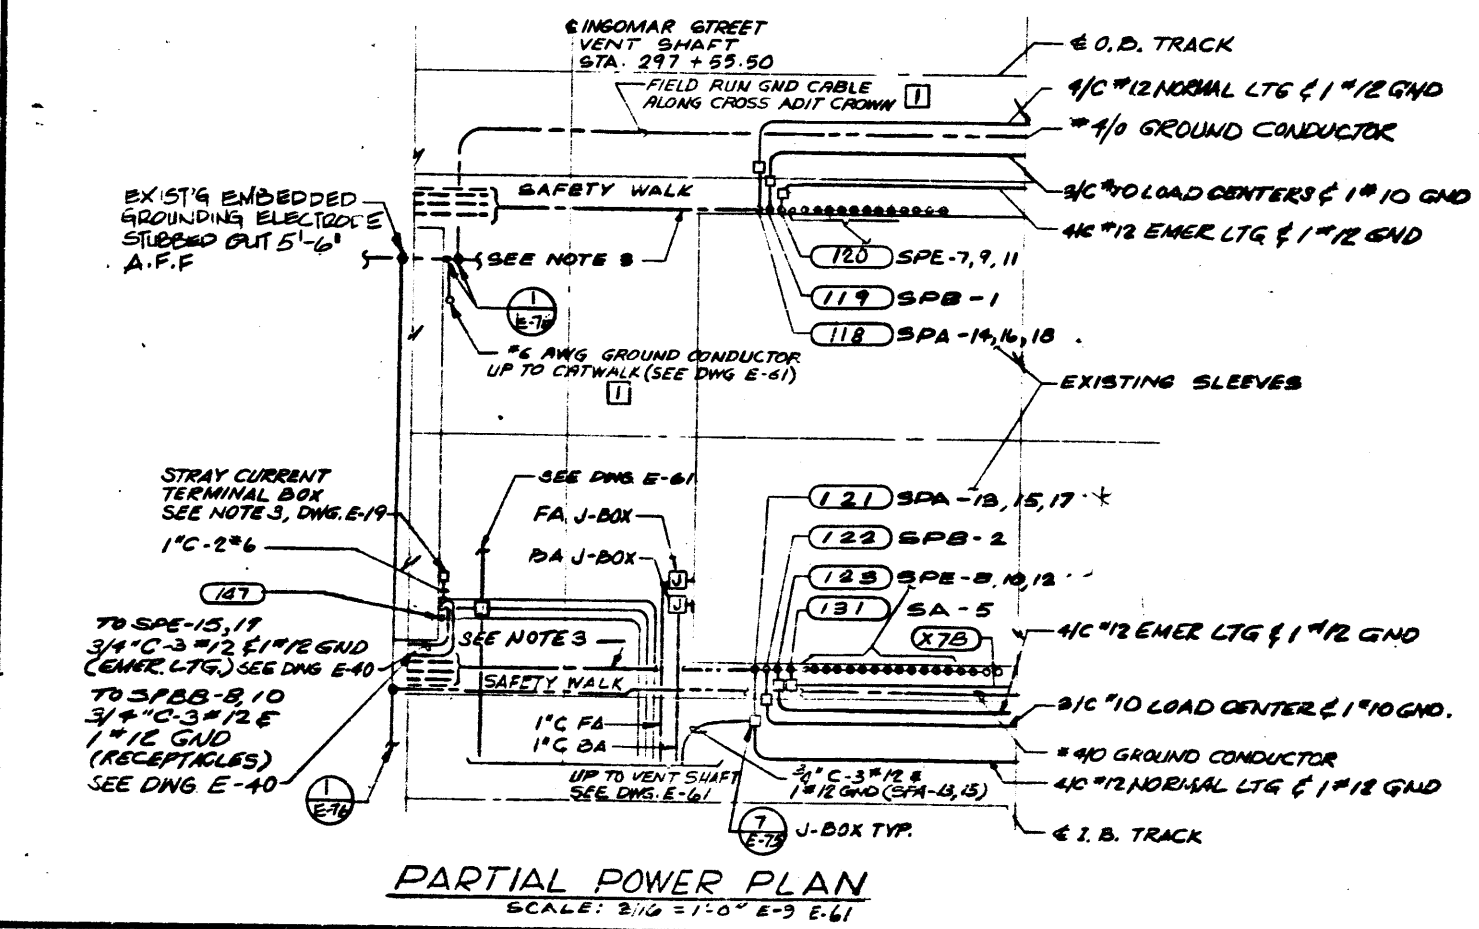 ℄ INGOMAR STREET
VENT SHAFT
STA. 297 + 55.50
FIELD RUN GND CABLE
ALONG CROSS ADIT CROWN 1
℄ O.B. TRACK
4/C #12 NORMAL LTG & 1 #12 GND
#4/0 GROUND CONDUCTOR
3/C #10 LOAD CENTERS & 1 #10 GND
4/C #12 EMER LTG & 1 #12 GND
EXIST'G EMBEDDED
GROUNDING ELECTRODE
STUBBED OUT 5'-6"
A.F.F
SAFETY WALK
SEE NOTE 3
1
E-76
#6 AWG GROUND CONDUCTOR
UP TO CATWALK (SEE DWG E-61)
1
120 SPE-7, 9, 11
119 SPB-1
118 SPA-14, 16, 18
EXISTING SLEEVES
STRAY CURRENT
TERMINAL BOX
SEE NOTE 3, DWG. E-19
1"C-2#6
147
TO SPE-15, 17
3/4"C-3 #12 & 1 #12 GND
(EMER. LTG.) SEE DWG E-40
TO SPBB-8, 10
3/4"C-3 #12 &
1 #12 GND
(RECEPTACLES)
SEE DWG. E-40
1
E-76
SEE DWG. E-61
FA J-BOX
BA J-BOX
J
J
SEE NOTE 3
SAFETY WALK
1"C FA
1"C BA
UP TO VENT SHAFT
SEE DWG. E-61
121 SPA-13, 15, 17
122 SPB-2
123 SPE-8, 10, 12
131 SA-5
X7B
4/C #12 EMER LTG & 1 #12 GND
3/C #10 LOAD CENTER & 1 #10 GND.
#4/0 GROUND CONDUCTOR
4/C #12 NORMAL LTG & 1 #12 GND
3/4" C-3 #12 &
1 #12 GND (SPA-13, 15)
7
E-75
J-BOX TYP.
℄ I.B. TRACK
PARTIAL POWER PLAN
SCALE: 3/16 = 1'-0" E-9 E-61